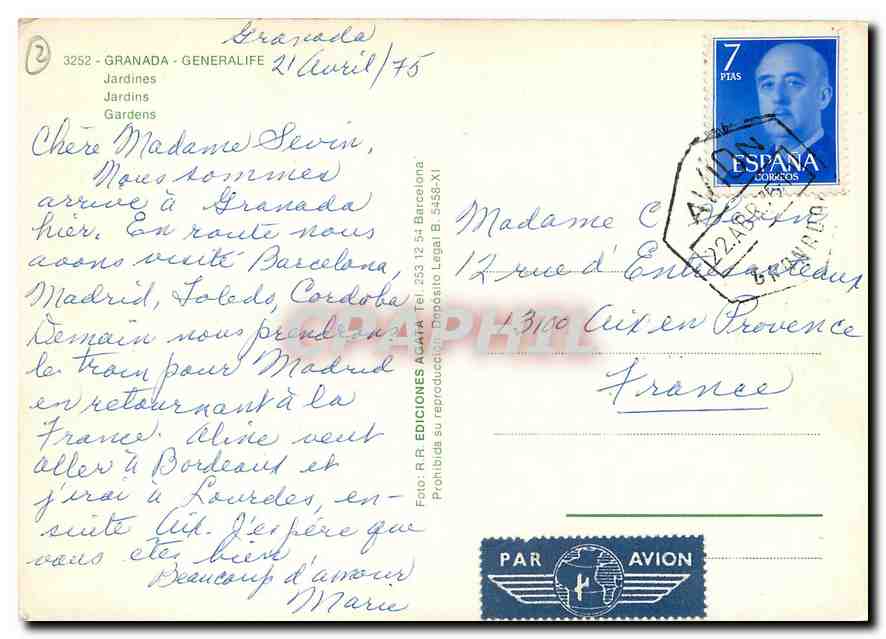 2
Granada
21 Avril/75
3252 - GRANADA - GENERALIFE
Jardines
Jardins
Gardens
Chère Madame Sevin,
Nous sommes
arrive à Granada
hier. En route nous
avons visité Barcelona,
Madrid, Toledo, Cordoba
Demain nous prendrons
le train pour Madrid
en retournant à la
France. Aline veut
aller à Bordeaux et
j'irai à Lourdes, en-
suite Aix. J'espère que
vous etes bien,
Beaucoup d'amour
Marie
Foto: R.R. EDICIONES AGATA Tel. 253 12 54 Barcelona
Prohibida su reproducción Depósito Legal B. 5458-XI
7
PTAS
ESPAÑA
CORREOS
AVION
22.ABR.75
GRANADA
Madame C
12 rue d'
13100 Aix en Provence
France
PAR AVION
CPAPHIL